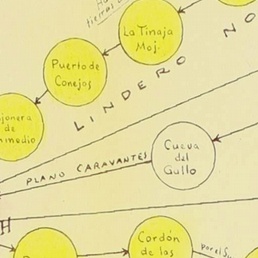 La Tinaja
Moj.
Puerto de
Conejos
LINDERO NO
de
medio
Cueva
del
Gullo
PLANO CARAVANTES
H
Cordón
de las
por el S